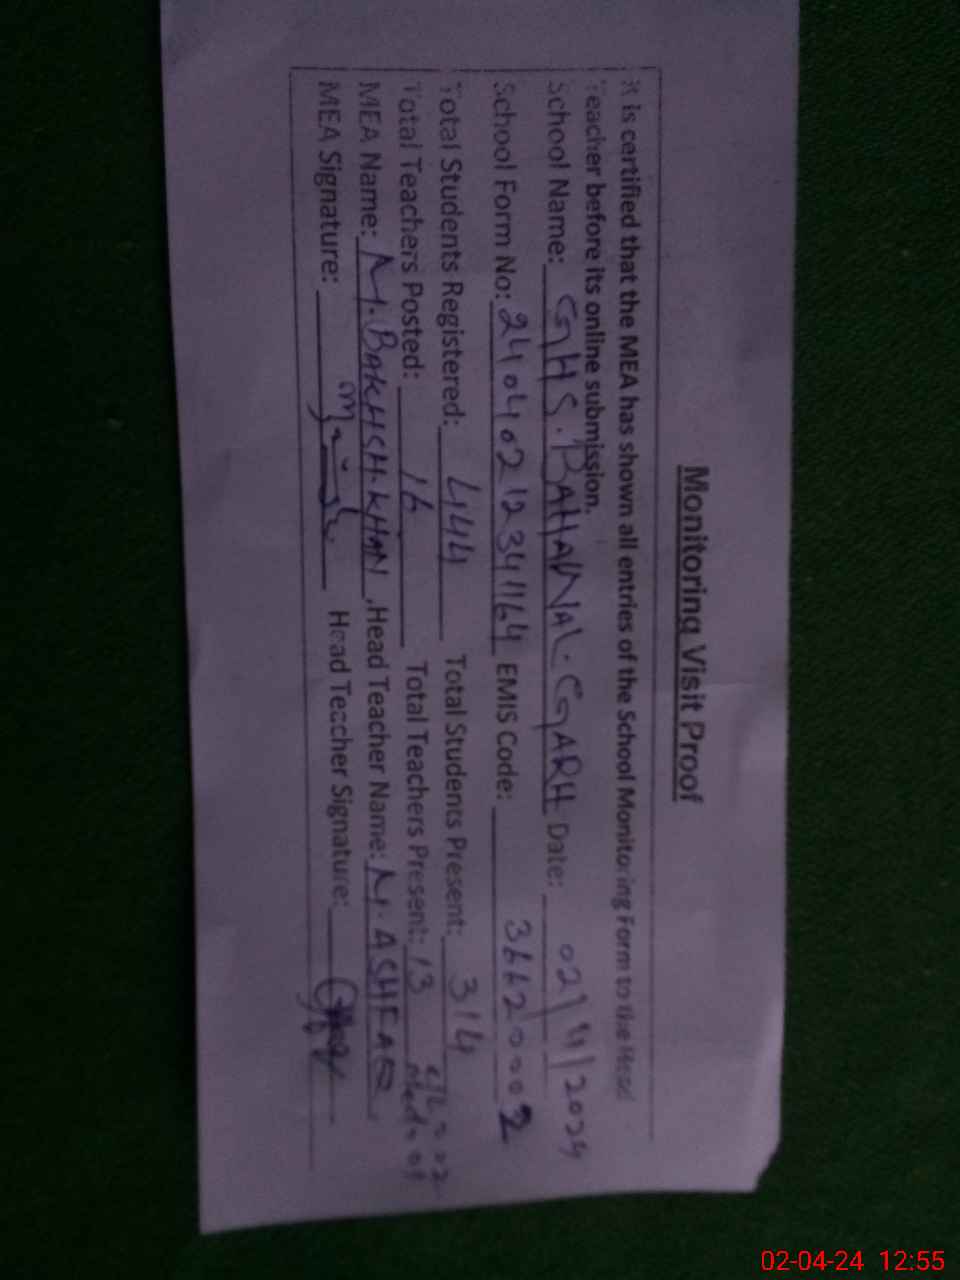 Monitoring Visit Proof
It is certified that the MEA has shown all entries of the School Monitoring Form to the Head
Teacher before its online submission.
School Name: GHS. BAHAWAL. GARH Date: 02/4/2024
School Form No: 24040212341164 EMIS Code: 36620002
Total Students Registered: 444 Total Students Present: 314
Total Teachers Posted: 16 Total Teachers Present: 13
MEA Name: M. BAKHSH. KHAN, Head Teacher Name: M. ASHFAQ
MEA Signature: Head Teacher Signature:
02-04-24 12:55